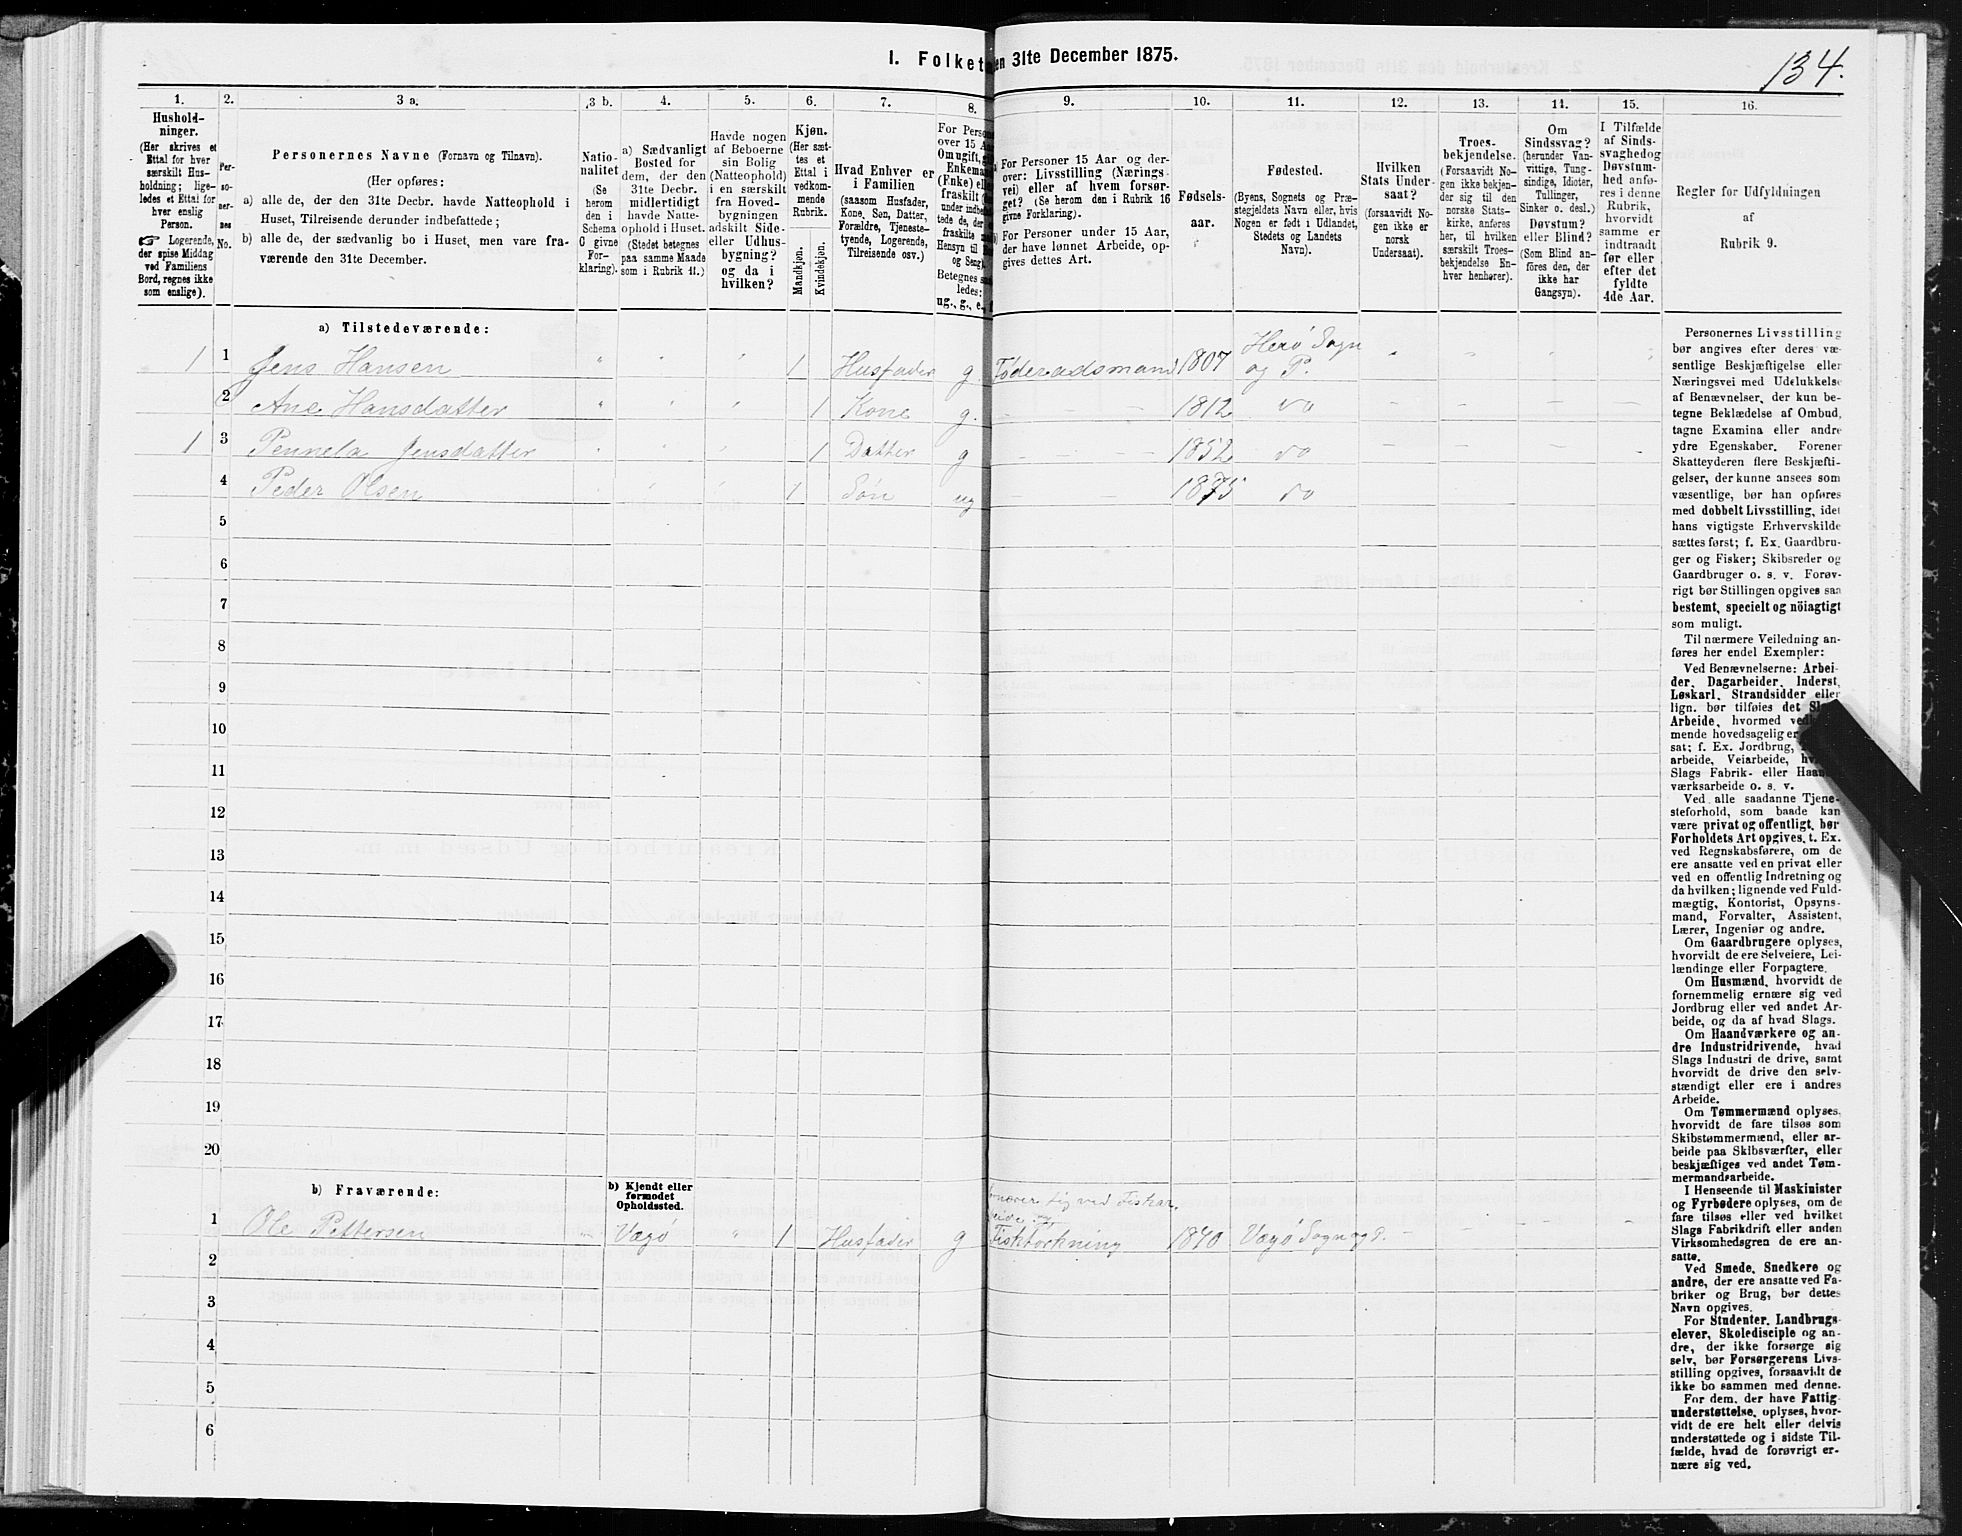 134.
I. Folket en 31te December 1875.
1. 2. 3 a. 3 b. 4. 5. 6. 7. 8. 9. 10. 11. 12. 13. 14. 15. 16.
Hushold-
ninger.
(Her skrives et
Ettal for hver
særskilt Hus-
holdning; lige-
ledes et Ettal for
hver enslig
Person.
☞ Logerende,
der spise Middag
ved Familiens
Bord, regnes ikke
som enslige).
Per-
so-
ner-
nes
No.
Personernes Navne (Fornavn og Tilnavn).
(Her opføres:
a) alle de, der den 31te Decbr. havde Natteophold i
Huset, Tilreisende derunder indbefattede;
b) alle de, der sædvanlig bo i Huset, men vare fra-
værende den 31te December.
Natio-
nalitet
(Se
herom
den i
Schema
C givne
For-
klaring).
a) Sædvanligt
Bosted for
dem, der den
31te Decbr.
midlertidigt
havde Natte-
ophold i Huset.
(Stedet betegnes
paa samme Maade
som i Rubrik 11.)
Havde nogen
af Beboerne
sin Bolig
(Natteophold)
i en særskilt
fra Hoved-
bygningen
adskilt Side-
eller Udhus-
bygning?
og da i
hvilken?
Kjøn.
(Her sæt-
tes et
Ettal i
vedkom-
mende
Rubrik.
Mandkjøn.
Kvindekjøn.
Hvad Enhver er
i Familien
(saasom Husfader,
Kone, Søn, Datter,
Forældre, Tjeneste-
tyende, Logerende,
Tilreisende osv.)
For Perso
over 15 Aa
Om ugift, gi
Enkema
(Enke) el
fraskilt (
under indbe
tede de, de
fraskilte
Hensyn til
og Seng).
Betegnes s
ledes:
ug., g., e.,
For Personer 15 Aar og der-
over: Livsstilling (Nærings-
vei) eller af hvem forsør-
get? (Se herom den i Rubrik 16
givne Forklaring).
For Personer under 15 Aar,
der have lønnet Arbeide, op-
gives dettes Art.
Fødsels-
aar.
Fødested.
(Byens, Sognets og Præ-
stegjeldets Navn eller, hvis
Nogen er født i Udlandet,
Stedets og Landets
Navn).
Hvilken
Stats Under-
saat?
(forsaavidt No-
gen ikke er
norsk
Undersaat).
Troes-
bekjendelse.
(Forsaavidt No-
gen ikke bekjen-
der sig til den
norske Stats-
kirke, anføres
her, til hvilken
særskilt Troes-
bekjendelse En-
hver henhører).
Om
Sindssvag?
(herunder Van-
vittige, Tung-
sindige, Idioter,
Tullinger,
Sinker o. desl.)
Døvstum?
eller Blind?
(Som Blind an-
føres den, der
ikke har
Gangsyn).
I Tilfælde
af Sinds-
svaghed og
Døvstum-
hed anfø-
res i denne
Rubrik,
hvorvidt
samme er
indtraadt
før eller
efter det
fyldte
4de Aar.
Regler for Udfyldningen
af
Rubrik 9.
a) Tilstedeværende:
1 1 Jens Hansen " 1 Husfader g. Føderaadsmand 1807 Herø Sogn
og P.
2 Ane Hansdatter " 1 Kone g. – – – 1812 do
1 3 Pennela Jensdatter 1 Datter g – – – 1852 do
4 Peder Olsen 1 Søn ug – – 1875 do
5
6
7
8
9
10
11
12
13
14
15
16
17
18
19
20
b) Fraværende:
b) Kjendt eller
formodet
Opholdssted.
1 Ole Pettersen Vægø " 1 Husfader g Fisktørkning 1840 Vægø Sogn og P.
2
3
4
5
6
Personernes Livsstilling
bør angives efter deres væ-
sentlige Beskjæftigelse eller
Næringsvei med Udelukkelse
af Benævnelser, der kun be-
tegne Beklædelse af Ombud,
tagne Examina eller andre
ydre Egenskaber. Forener
Skatteyderen flere Beskjæfti-
gelser, der kunne ansees som
væsentlige, bør han opføres
med dobbelt Livsstilling, idet
hans vigtigste Erhvervskilde
sættes først; f. Ex. Gaardbru-
ger og Fisker; Skibsreder og
Gaardbruger o. s. v. Forøv-
rigt bør Stillingen opgives saa
bestemt, specielt og nöiagtigt
som muligt.
Til nærmere Veiledning an-
føres her endel Exempler:
Ved Benævnelserne: Arbei-
der, Dagarbeider, Inderst,
Løskarl, Strandsidder eller
lign. bør tilføies det
Arbeide, hvormed
mende hovedsagelig er
sat; f. Ex. Jordbrug,
arbeide, Veiarbeide,
Slags Fabrik- eller
værksarbeide o. s. v.
Ved alle saadanne Tjene-
steforhold, som baade kan
være privat og offentligt, bør
Forholdets Art opgives, t. Ex.
ved Regnskabsførere, om de
ere ansatte ved en privat eller
ved en offentlig Indretning og
da hvilken; lignende ved Fuld-
mægtig, Kontorist, Opsyns-
mand, Forvalter, Assistent,
Lærer, Ingeniør og andre.
Om Gaardbrugere oplyses,
hvorvidt de ere Selveiere, Lei-
lændinge eller Forpagtere.
Om Husmænd, hvorvidt de
fornemmelig ernære sig ved
Jordbrug eller ved andet Ar-
beide, og da af hvad Slags.
Om Haandværkere og an-
dre Industridrivende, hvad
Slags Industri de drive, samt
hvorvidt de drive den selv-
stændigt eller ere i andres
Arbeide.
Om Tømmermænd oplyses,
hvorvidt de fare tilsøs som
Skibstømmermænd, eller ar-
beide paa Skibsværfter, eller
beskjæftiges ved andet Tøm-
mermandsarbeide.
I Henseende til Maskinister
og Fyrbødere oplyses, om de
fare tilsøs eller ved hvilket
Slags Fabrikdrift eller anden
Virksomhedsgren de ere an-
satte.
Ved Smede, Snedkere og
andre, der ere ansatte ved Fa-
briker og Brug, bør dettes
Navn opgives.
For Studenter, Landbrugs-
elever, Skoledisciple og an-
dre, der ikke forsørge sig
selv, bør Forsørgerens Livs-
stilling opgives, forsaavidt de
ikke bo sammen med denne.
For dem, der have Fattig-
understøttelse, oplyses, hvor-
vidt de ere helt eller delvis
understøttede og i sidste Til-
fælde, hvad de forøvrigt er-
nære sig ved.